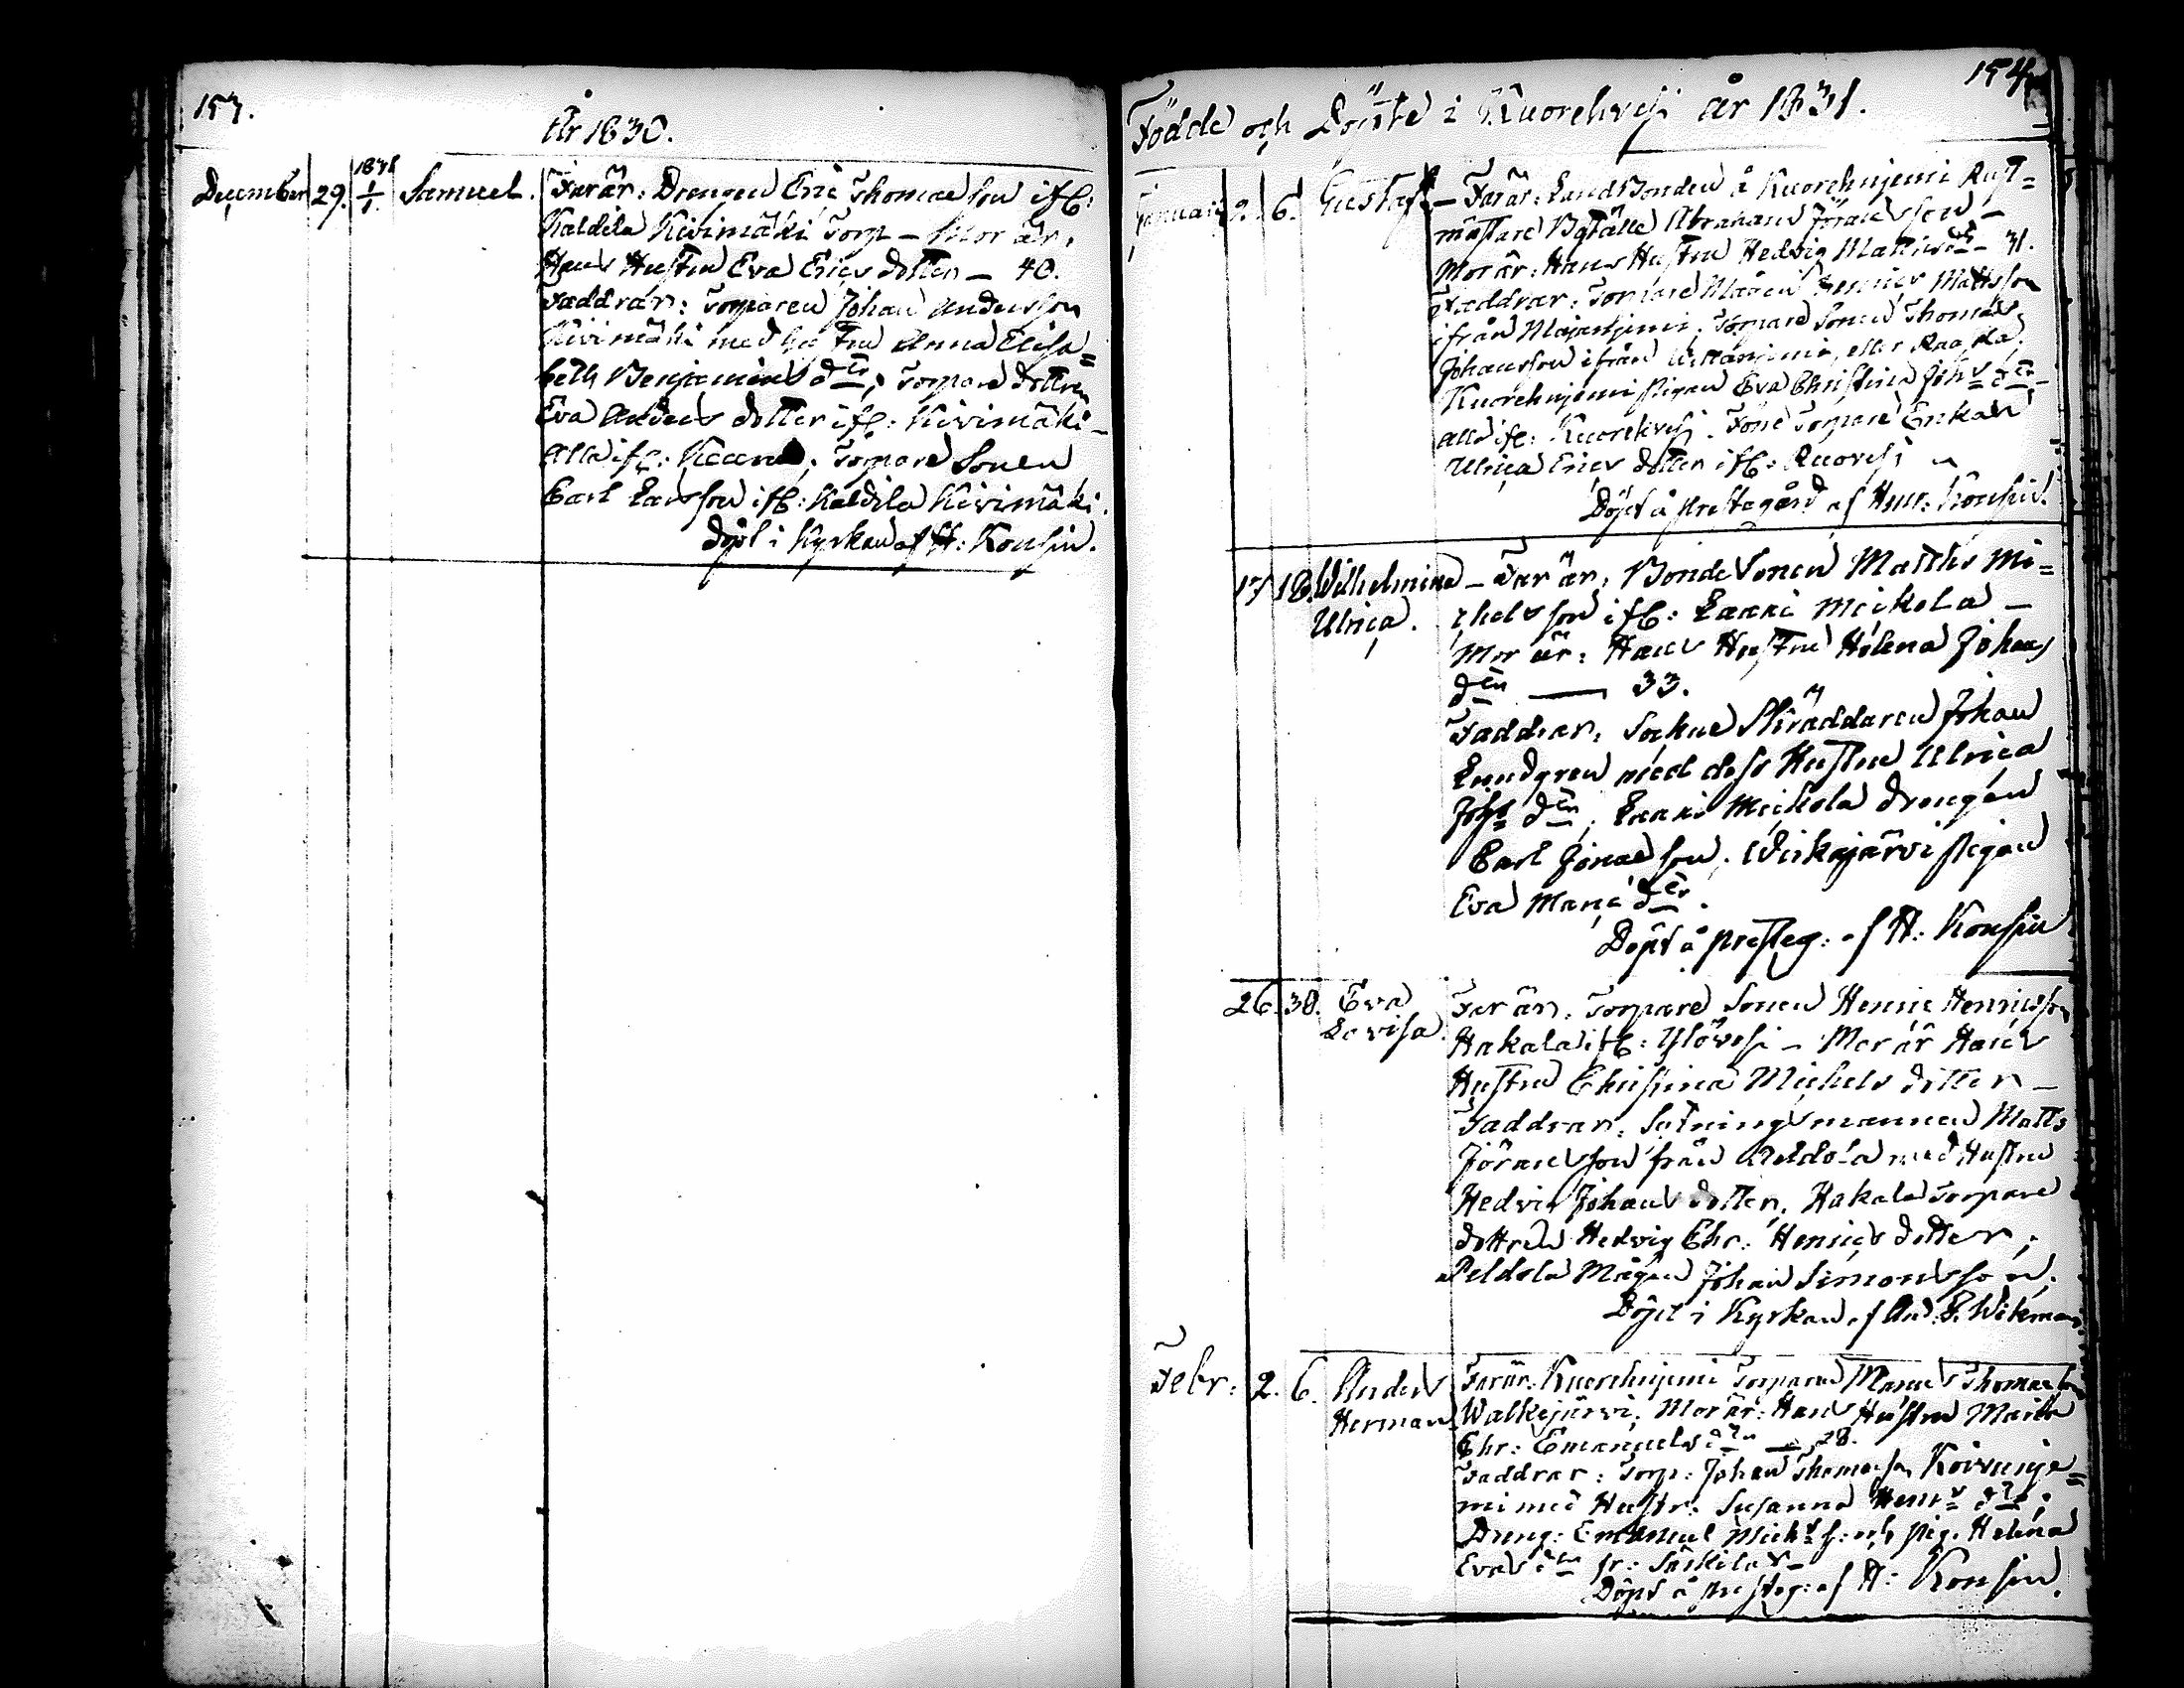 153.
År 1830.
December 29. 1831 1/1. Samuel. Far är: Drengen Eric Thomasson ifl:
Kaldela Kivimäki Torp – Mor är,
Hans Hustru Eva Erics dotter – 40.
Faddrar: Torparen Johan Andersson
Kivimäki med hustru Anna Elisa=
beth Benjamins dtr; Torpare dottren
Eva Anders dotter ifl: Kivimäki –
Alla ifl: Torpare Sonen
Carl Larsson ifl: Kaldela Kivimäki.
döpt i Kyrkan af H: Konsin.
154
Födde och Döpte i Kuorehvesi år 1831.
Januari 2. 6. Gustaf – Far är: Landbonden å Kuorehnjemi Rust=
mästare Boställe Abraham Jöransson –
Mor är: Hans Hustru Hedvig Matts dr – 31.
Faddrar: Torpare Mågen Henric Mattsson
ifrån Majanjemi; Torpare Sonen Thomas
Johansson ifrån eller
Kuorehnjemi Pigan Eva Christina Johs dtr –
alla ifl: Kuorehvesi. Torpare Enkan
Ulrica Erics dotter ifl: Ruovesi
Döpt å Prestegård af Konsin.
17 18. Wilhelmina – Far är, Bonde Sonen Matths Mi=
Ulrica. chelsson ifl: Lanki Meikola –
Mor är: Hans Hustru Helena Johans
dtr — 33.
Faddrar, Sockne Skräddaren Johan
Lundgren med dess Hustru Ulrica
Johs dtr, Lanki Meikola drengen
Carl Jönasson, Weikajärvi Pigan
Eva Maria dtr.
Döpt å presteg: af H: Konsin
26. 30. Eva Far är, Torpare Sonen Henric Henricsson
Lovisa. Hakala ifl: Ylövesi – Mor är Hans
Hustru Christina Michels dotter –
Faddrar, Sätningsmannen Matts
Jöransson från Peldola med Hustru
Hedvig Johans dotter, Hakala Torpare
dottren Hedvig Chr: Henrics dotter,
Peldola Mågen Johan Simonsson.
Döpt i Kyrkan af And: F. Wikman.
Febr: 2. 6. Anders Far är: Kuorehnjemi Torparen Manuel Thomasson
Herman Walkejärvi, Mor är: Hans Hustru Maria
Chr: Emanuels dtr — 28.
Faddrar: Torp: Johan Thomasson Koivunje=
mi med Hustr: Susanna Henrs dtr;
Dreng: Emanuel Michs s: och pig. Helena
Evas dtr fr: Särkilax –
Döpt å presteg: af H: Konsin.